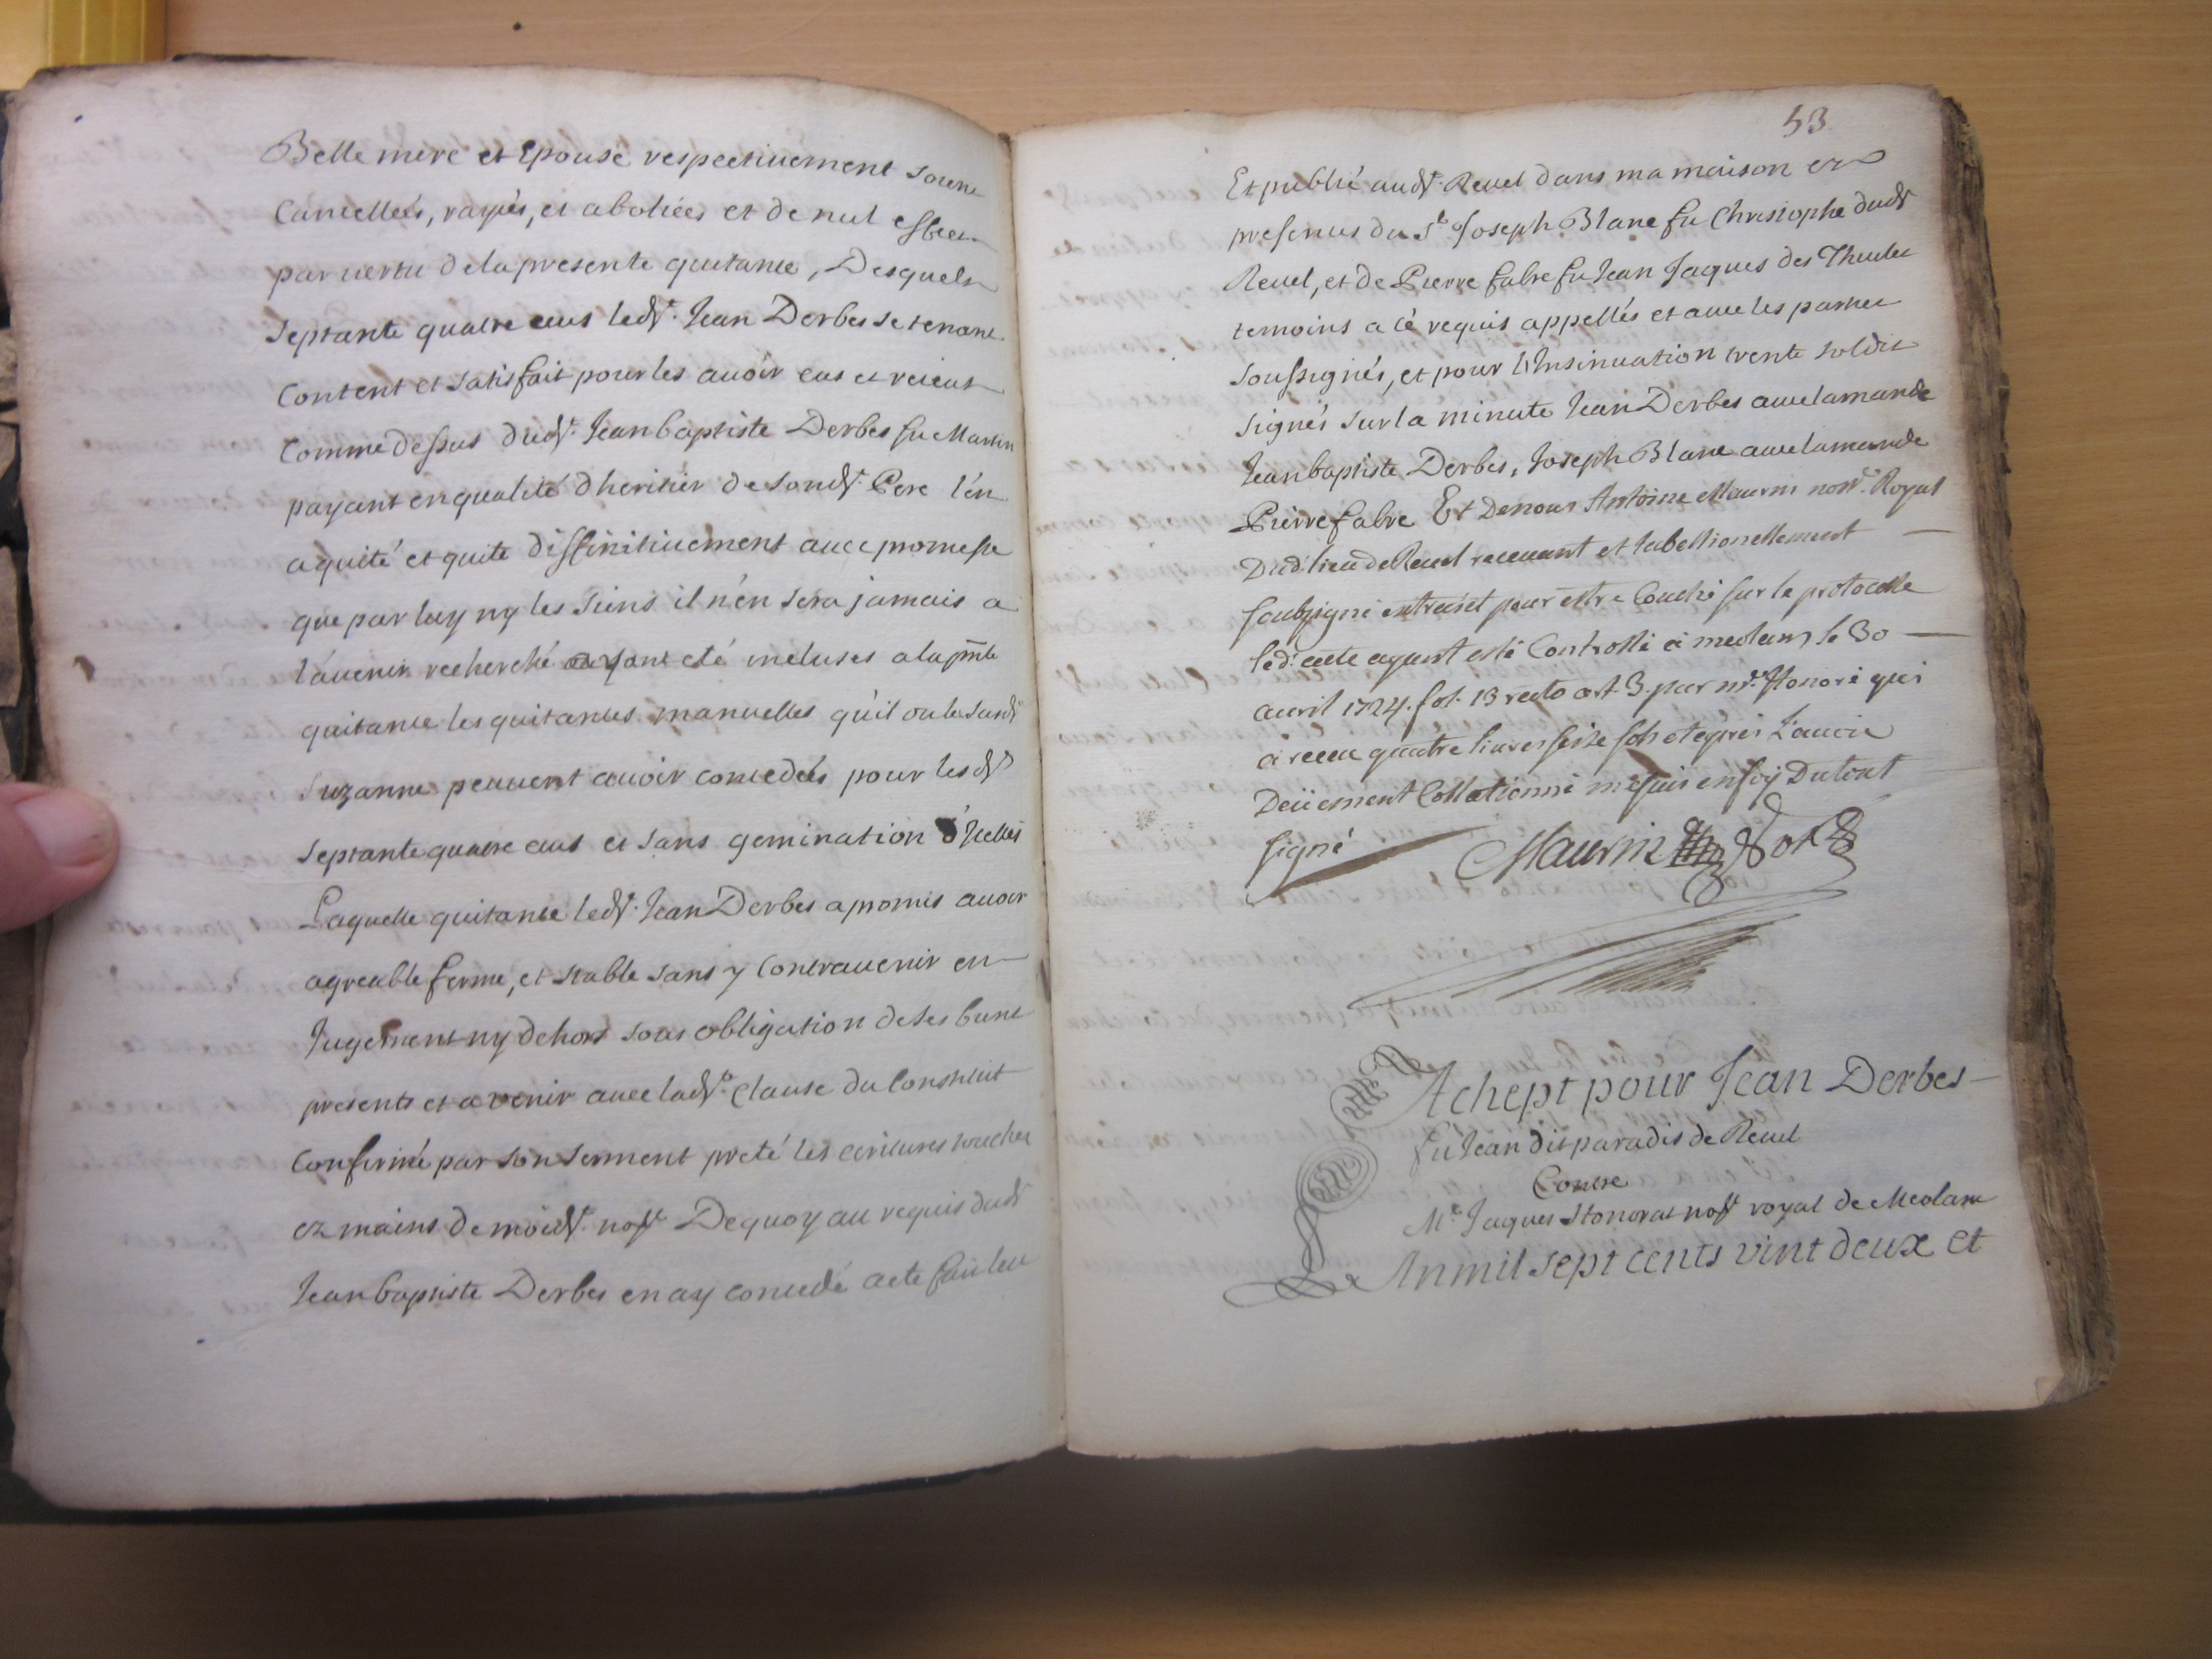 Belle mere et Epouse respectivement soient
Cancellées, rayés, et aboliées et de nul effect
par vertu de la presente quitance, Desquels
septante quatre ecus ledt. Jean Derbes se tenant
Content et satisfait pour les auoir eus et receus
Comme dessus dudt. Jean baptiste Derbes fu Martin
payant en qualité d'heritier de sondt. Pere l'en
a quité et quite diffinitiuement auec promesse
que par luy ny les siens il n'en sera jamais a
l'auenir recherché ayant eté incluses a la pnte
quitance les quitances manuelles qu'il ou la susdt
Suzanne peuuent auoir concedées pour lesdts
septante quatre ecus et sans gemination d'Jcelles
Laquelle quitance ledt. Jean Derbes a promis auoir
agreable ferme, et stable sans y Contrauenir en
Jugement ny dehors sous obligation de ses biens
presents et a venir auec ladte. Clause du Constitut
Confirmé par son serment preté les ecritures touchées
ez mains de moidt. nore De quoy au requis dudt
Jean baptiste Derbes en ay concedé acte fait leu
53
Et publié audt. Reuel dans ma maison en
presences du Sr. Joseph Blanc fu Christophe dudt
Reuel, et de Pierre fabre fu Jean Jaques des Thuiles
temoins a cé requis appellés et auec les parties
soussignés, et pour l'Insinuation trente soldis
signés sur la minute Jean Derbes auec la maride
Jean baptiste Derbes, Joseph Blanc auec la maride
Pierre fabre Et De nous Antoine Maurin nore. Royal
Dud. lieu de Reuel receuant et tabellionellement
soubzigné extraict pour estre Couché sur le protocolle
led. acte ayant esté Controllé a meolans le 30
auril 1724. fol. 13 recto art. 3. par mr. Honoré qui
a receu quatre liures seise sols et apres L'auoir
Deüement Collationné me suis en foy Du tout
signé Maurin Not
Achept pour Jean Derbes
fu Jean dit paradis de Reuel
Contre
Me. Jaques Honorat nore royal de Meolans
L'An mil sept cents vint deux et